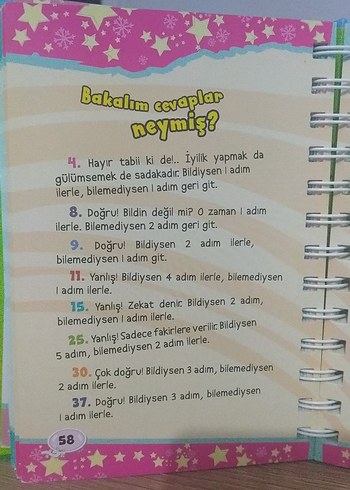 Bakalım cevaplar
neymiş?
4. Hayır tabii ki de!.. İyilik yapmak da
gülümsemek de sadakadır. Bildiysen 1 adım
ilerle, bilemediysen 1 adım geri git.
8. Doğru! Bildin değil mi? O zaman 1 adım
ilerle. Bilemediysen 2 adım geri git.
9. Doğru! Bildiysen 2 adım ilerle,
bilemediysen 1 adım git.
11. Yanlış! Bildiysen 4 adım ilerle, bilemediysen
1 adım ilerle.
15. Yanlış! Zekat denir. Bildiysen 2 adım,
bilemediysen 1 adım ilerle.
25. Yanlış! Sadece fakirlere verilir. Bildiysen
5 adım, bilemediysen 2 adım ilerle.
30. Çok doğru! Bildiysen 3 adım, bilemediysen
2 adım ilerle.
37. Doğru! Bildiysen 3 adım, bilemediysen
1 adım ilerle.
58